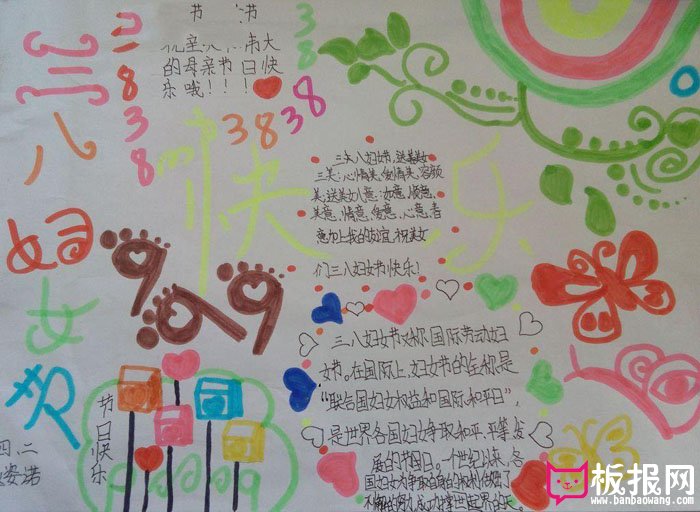 三八妇女节
三八
38
38
38
38
38
节 节
祝全天下伟大
的母亲节日快
乐哦！！！
快乐
三月八妇女节，送美女
三美：心情美，爱情美，容颜
美，送美女八意：如意，顺意，
美意，情意，爱意，心意，春
意加上我的友谊，祝美女
们三八妇女节快乐！
三八妇女节又称国际劳动妇
女节。在国际上，妇女节的全称是
“联合国妇女权益和国际和平日”，
是世界各国妇女争取和平、平等、发
展的节日。一个世纪以来，各
国妇女为争取自身的权利做了
节日快乐
四、二
安诺
板报网
www.banbaowang.com